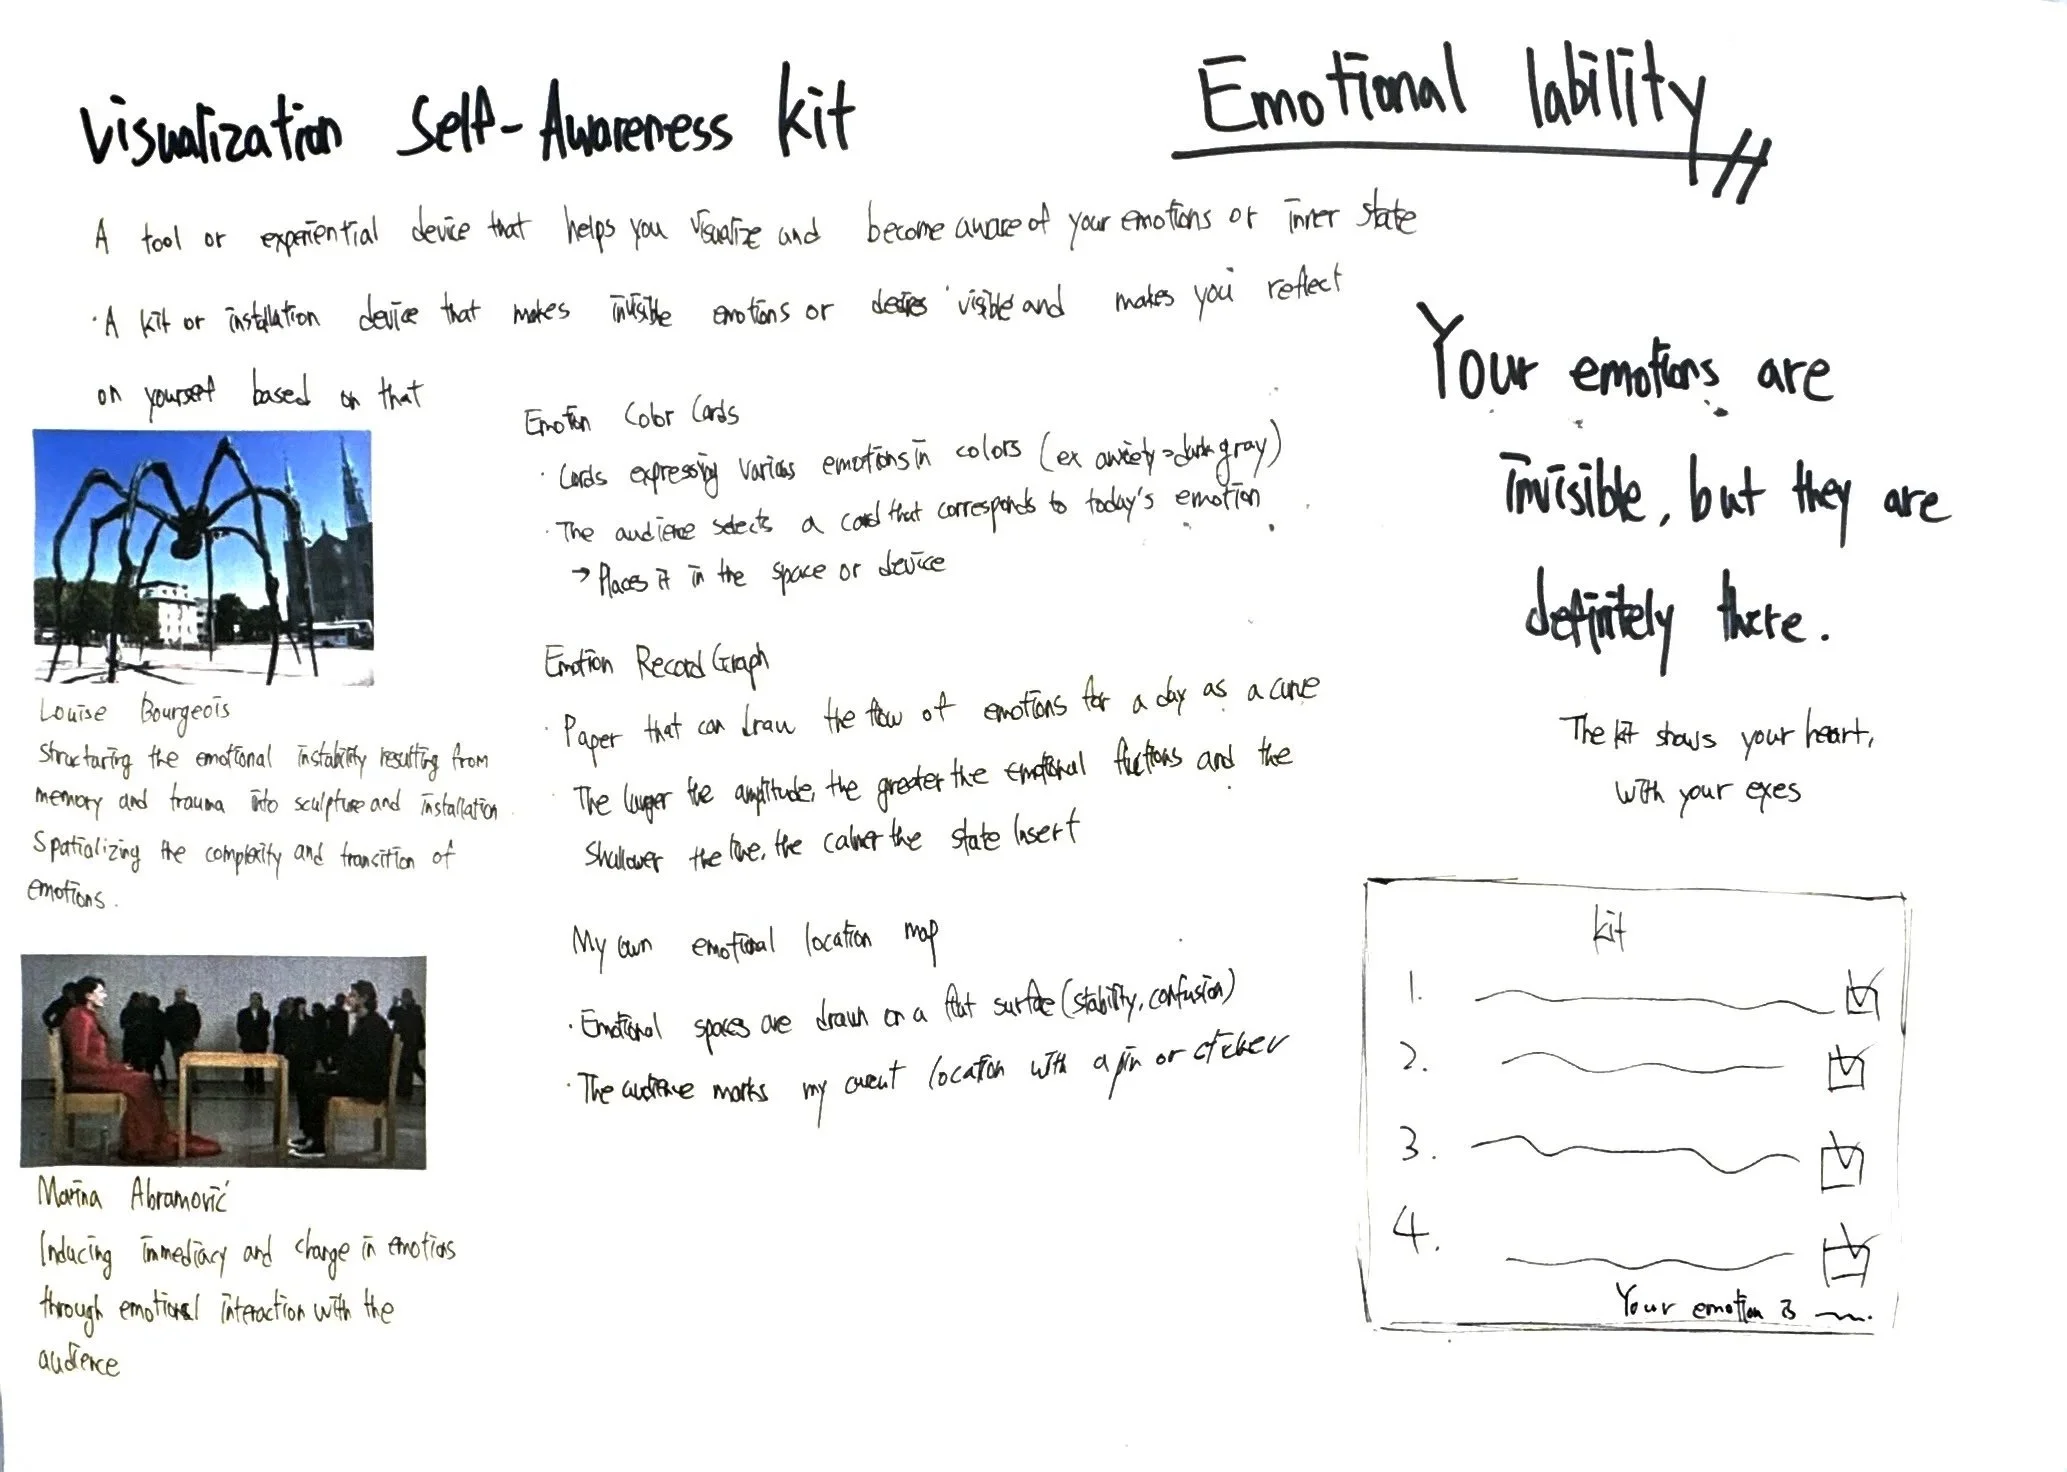 Visualization Self-Awareness kit
Emotional lability
A tool or experiential device that helps you visualize and become aware of your emotions or inner state
· A kit or installation device that makes invisible emotions or desires visible and makes you reflect
on yourself based on that
Louise Bourgeois
Structuring the emotional instability resulting from
memory and trauma into sculpture and installation.
Spatializing the complexity and transition of
emotions.
Marina Abramović
Inducing immediacy and change in emotions
through emotional interaction with the
audience
Emotion Color Cards
· Cards expressing various emotions in colors (ex anxiety = dark gray)
· The audience selects a card that corresponds to today's emotion
→ Places it in the space or device
Emotion Record Graph
· Paper that can draw the flow of emotions for a day as a curve
· The larger the amplitude, the greater the emotional and the
shallower the line, the calmer the state Insert
My own emotional location map
· Emotional spaces are drawn on a flat surface (stability, confusion)
· The audience marks my current location with a pin or sticker
Your emotions are
invisible, but they are
definitely there.
The kit shows your heart,
with your exes
kit
1.
2.
3.
4.
Your emotion is